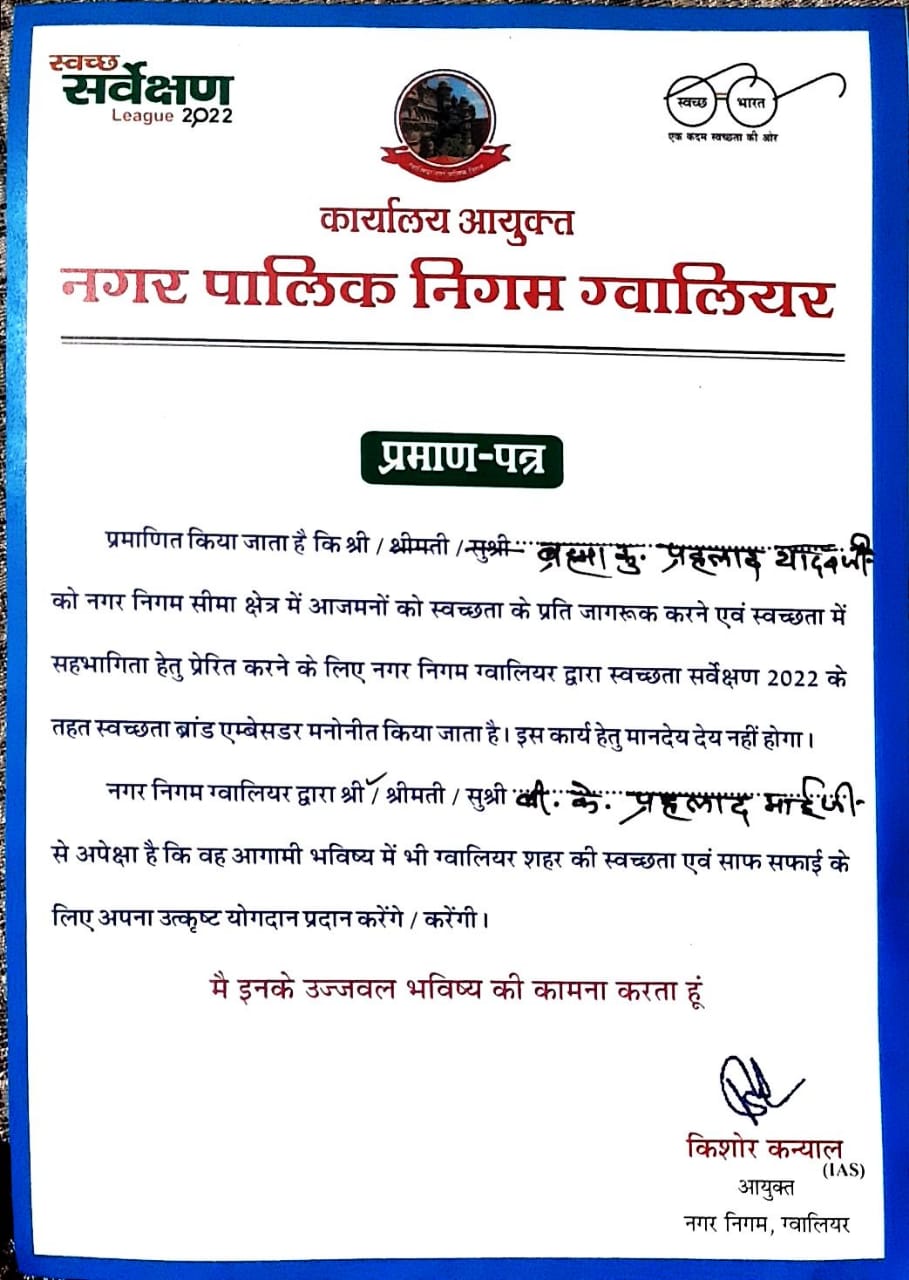 स्वच्छ
सर्वेक्षण
League 2022
स्वच्छ भारत
एक कदम स्वच्छता की ओर
कार्यालय आयुक्त
नगर पालिक निगम ग्वालियर
प्रमाण-पत्र
प्रमाणित किया जाता है कि श्री / श्रीमती / सुश्री ब्रह्मा कु. प्रहलाद यादवजी
को नगर निगम सीमा क्षेत्र में आजमनों को स्वच्छता के प्रति जागरूक करने एवं स्वच्छता में
सहभागिता हेतु प्रेरित करने के लिए नगर निगम ग्वालियर द्वारा स्वच्छता सर्वेक्षण 2022 के
तहत स्वच्छता ब्रांड एम्बेसडर मनोनीत किया जाता है। इस कार्य हेतु मानदेय देय नहीं होगा।
नगर निगम ग्वालियर द्वारा श्री / श्रीमती / सुश्री बी. के. प्रहलाद भाईजी
से अपेक्षा है कि वह आगामी भविष्य में भी ग्वालियर शहर की स्वच्छता एवं साफ सफाई के
लिए अपना उत्कृष्ट योगदान प्रदान करेंगे / करेंगी।
मै इनके उज्जवल भविष्य की कामना करता हूं
किशोर कन्याल
(IAS)
आयुक्त
नगर निगम, ग्वालियर